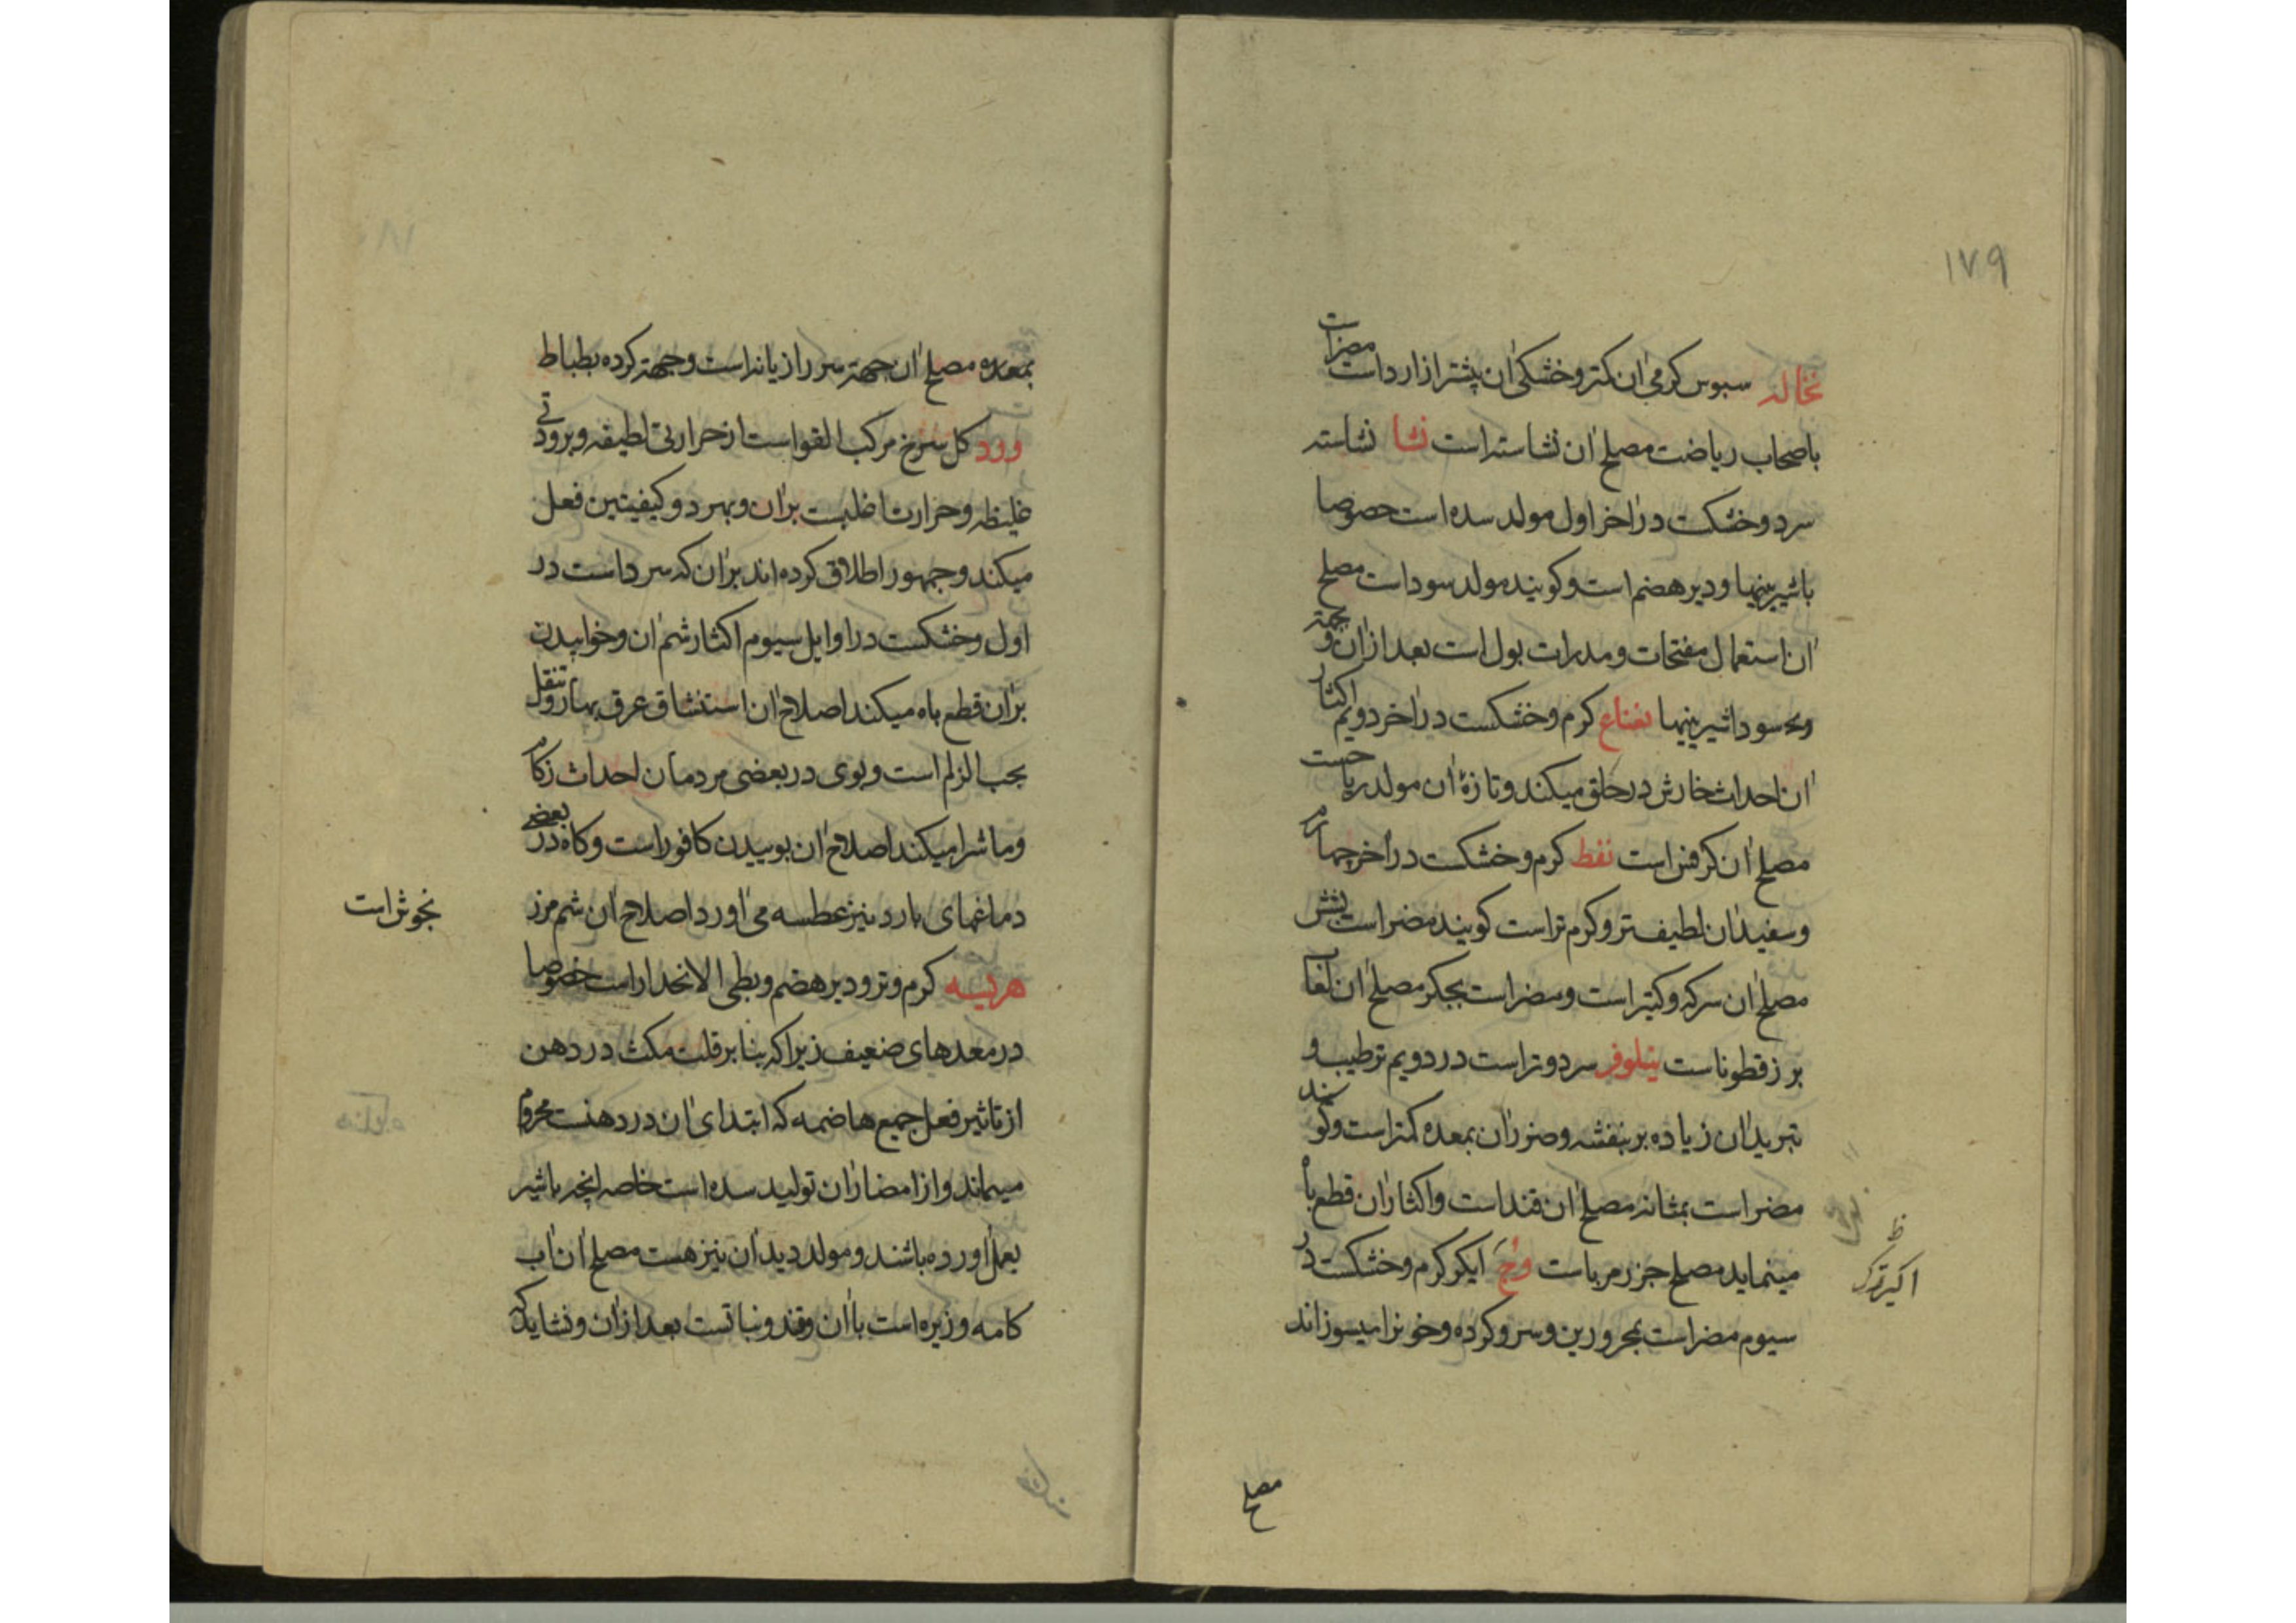 ١٧٩
نخاله سبوس کرمی ان کمتر و خشکی ان پیشتر از ارد است مضر است
باصحاب ریاضت مصلح ان نشاسته است نشا نشاسته
سرد و خشکست در اخر اول مولد سده است خصوصا
باشیرینیها و دیر هضم است و کویند مولد سودا است مصلح
ان استعمال مفتحات و مدرات بول است بعد از ان و بجهة
سودا شیرینیها نعناع کرم و خشکست در اخر دویم اکثار
ان احداث خارش در حلق میکند و تازۀ ان مولد ریاحست
مصلح ان کرفس است نفط کرم و خشکست در اخر چهارم
و سفید ان لطیف تر و کرم تر است کویند مضر است بشش
مصلح ان سرکه و کتیر است و مضر است بجکر مصلح ان لعاب
بزرقطونا است نیلوفر سرد و تر است در دویم ترطیب و
تبرید ان زیاده بر بنفشه و ضرر ان بمعده کمتر است و کویند
مضر است بمثانه مصلح ان قند است و اکثار ان قطع باه
مینماید مصلح جزر مربا است وج ایکر کرم و خشکست در
اکیر ترک
سیوم مضر است بمحرورین و سر و کرده و خونرا میسوزاند
مصلح
بمعده مصلح ان جهة سر رازیانه است و جهة کرده بطباط
ورد کل سرخ مرکب القوا است از حرارتی لطیفه و برودتی
غلیظه و حرارت اغلبست بر ان و بهر دو کیفیتین فعل
میکند و جمهور اطلاق کرده اند بر ان که سرد است در
اول و خشکست در اوایل سیوم اکثار شم ان و خوابیدن
بر ان قطع باه میکند اصلاح ان استنشاق عرق بهار و تنقل
بحب الزلم است و بوی در بعضی مردمان احداث زکام
و ماشرا میکند اصلاح ان بوییدن کافور است و کاه در بعضی
دماغهای بارد نیز عطسه می اورد اصلاح ان شم مرز
نجوش است
هریسه کرم و تر و دیر هضم و بطی الانحدار است خصوصا
در معدهای ضعیف زیرا که بنا بر قلت مکث در دهن
از تاثیر فعل جمیع هاضمه که ابتدای ان در دهنست محروم
میماند و از امضار ان تولید سده است خاصه انچه باشیر
بعمل اورده باشند و مولد دیدان نیز هست مصلح ان اب
کامه و زیره است با ان و قند و نباتست بعد از ان و نشاید که